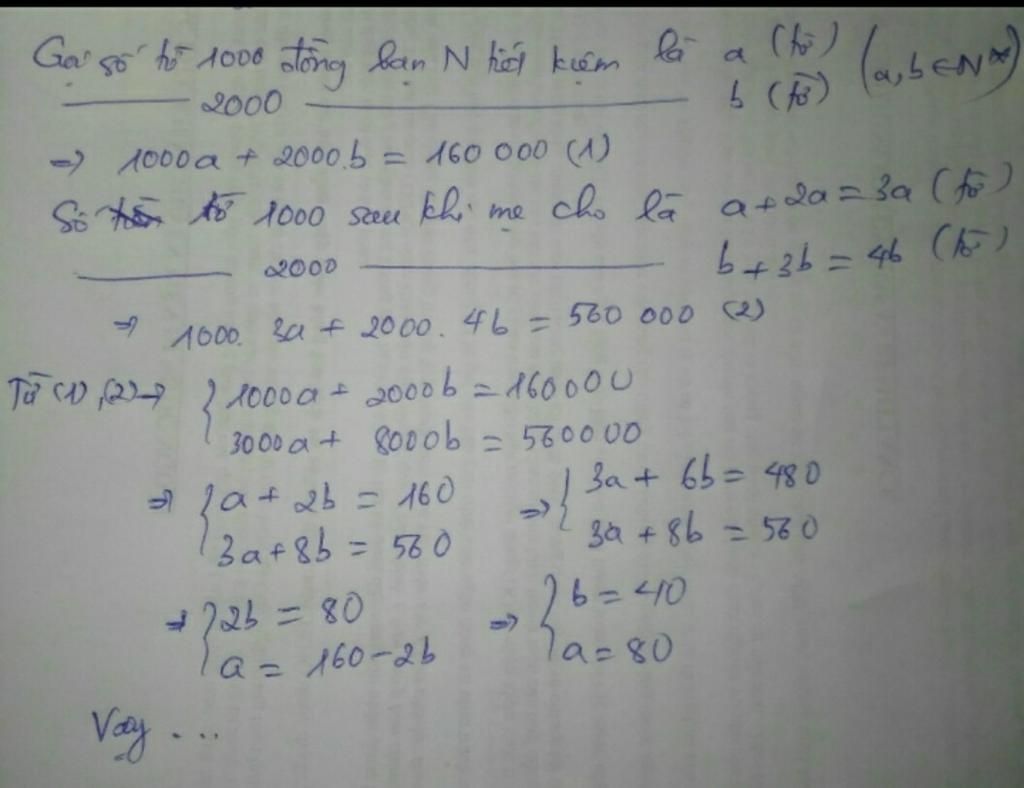 Gọi số tờ 1000 đồng bạn N tiết kiệm là a (tờ) (a, b ∈ N*)
2000 b (tờ)
=> 1000a + 2000.b = 160 000 (1)
Số tờ 1000 sau khi mẹ cho là a + 2a = 3a (tờ)
2000 b + 3b = 4b (tờ)
=> 1000. 3a + 2000. 4b = 560 000 (2)
Từ (1), (2) → { 1000a + 2000b = 160000
3000a + 8000b = 560000
=> { a + 2b = 160 => { 3a + 6b = 480
3a + 8b = 560 3a + 8b = 560
=> { 2b = 80 => { b = 40
a = 160 - 2b a = 80
Vậy ....